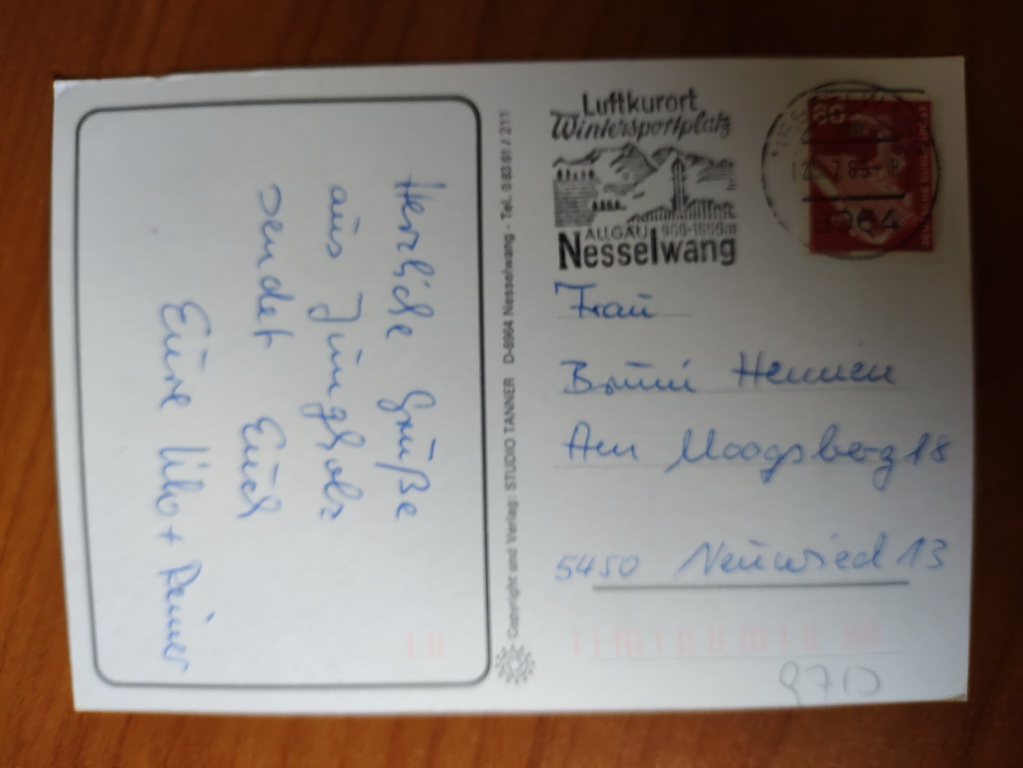 Herzliche Grüße
aus Jungholz
sendet Euch
Eure Udo + Reiner
Copyright und Verlag: STUDIO TANNER D-8964 Nesselwang - Tel. 08361 / 211
Luftkurort
Wintersportplatz
ALLGÄU 900-1600m
Nesselwang
60
8964
Frau
Bruni Hennen
Am Moogsberg 18
5450 Neuwied 13